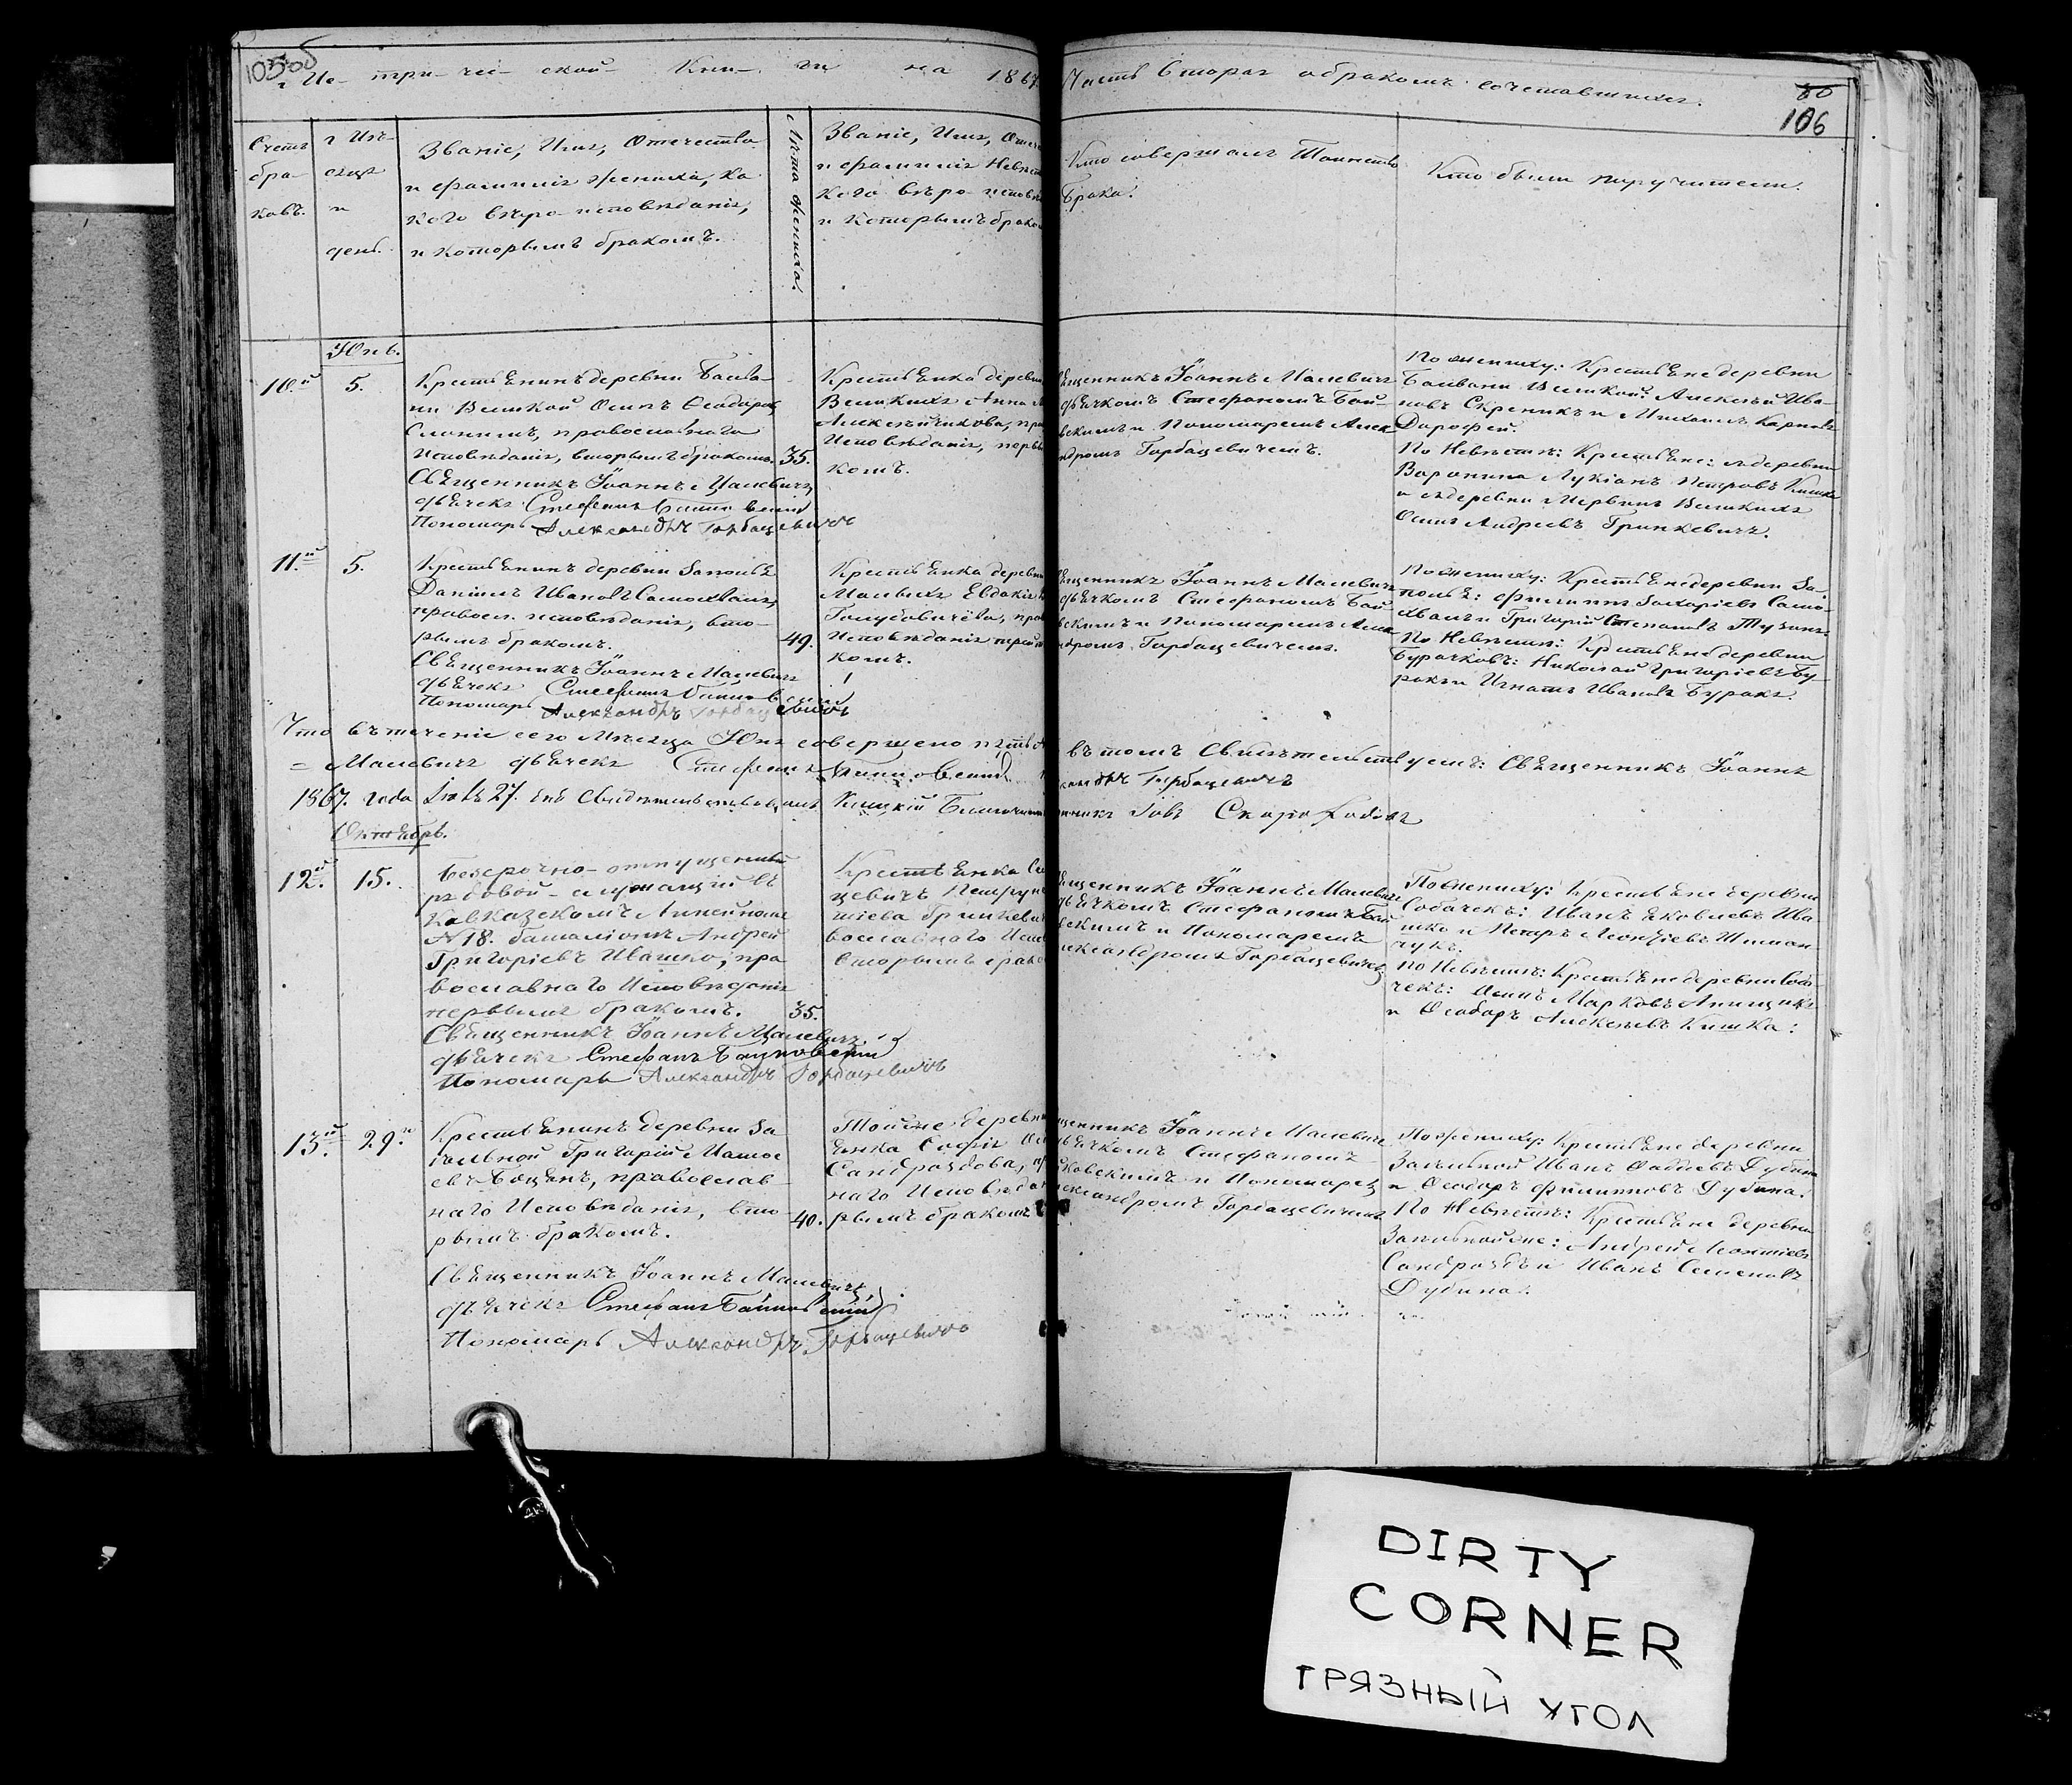 105об
Ме- три- чес- ской- Кни- ги на 1867.
Часть вторая о бракомъ сочетавшихся.
80
106
Счетъ
бра-
ковъ.
Мѣ-
сяцъ
и
день.
Званіе, Имя, Отечество
и фамилія жениха, ка
кого вѣро-исповѣданія,
и которымъ бракомъ.
Лѣта жениха.
Званіе, Имя, Отече
и фамилія Невѣст
кого вѣро-исповѣ
и Которымъ брако
Кто совершалъ Таинство
Брака.
Кто были поручители.
Юнь.
10й
5.
Крестьянинъ деревни
Великой Осипъ Ѳеодоровъ
православнаго
Исповѣданія, вторымъ бракомъ.
35.
Священникъ Іоаннъ Малевичъ
дьячекъ Стефанъ
Пономарь Александръ Горбацевичъ
Крестьянка деревни
Великихъ Анна
Алексѣйчикова, пра
Исповѣданія, первы
комъ.
Священникъ Іоаннъ Малевичъ
дьячкомъ Стефаномъ
вскимъ и Пономаремъ Алек
ндромъ Горбацевичемъ.
По жениху: Крестьяне деревни
Великой: Алексѣй Ива-
новъ Скреникъ и Михаилъ Карповъ
Дорофей.
По Невѣстѣ: Крестьяне: деревни
Воронина Лукіанъ Петровъ Кишка
и деревни Великихъ
Осипъ Андреевъ Гринкевичъ.
11.й
5.
Крестьянинъ деревни Заполья
Даніилъ Ивановъ Самохвалъ,
правосл. исповѣданія, вто-
рымъ бракомъ.
49.
Священникъ Іоаннъ Малевичъ
дьячекъ Стефанъ
Пономарь Александръ Горбацевичъ
Крестьянка деревни
Малыхъ Евдокія
Голубовичева, прав
Исповѣданія
комъ.
Священникъ Іоаннъ Малевичъ
дьячкомъ Стефаномъ
вскимъ и Пономаремъ Алек
ндромъ Горбацевичемъ.
По жениху: Крестьяне деревни За-
полья: Филиппъ Захаріевъ Само-
хвалъ и Григорій Степановъ
По Невѣстѣ: Крестьяне деревни
Бурачковъ: Николай Григоріевъ Бу-
ракъ и Игнатъ Ивановъ Буракъ.
Что въ теченіе сего Мѣсяца Юня совершено пять
въ томъ Свидѣтельствуемъ: Священникъ Іоаннъ
Малевичъ дьячекъ Стефанъ
Горбацевичъ
1867. года 27. дня
Октябрь.
12.й
15.
Безсрочно-отпущенный
рядовой служащій въ
Кавказскомъ Линейномъ
№ 18. баталіонѣ Андрей
Григоріевъ Ивашко, пра
вославнаго Исповѣданія
первымъ бракомъ.
35.
Священникъ Іоаннъ Малевичъ
дьячекъ Стефанъ
Пономарь Александръ Горбацевичъ
Крестьянка
цевичъ
тіева Гринкеви
вославнаго Испо
Вторымъ брако
Священникъ Іоаннъ Малевичъ
дьячкомъ Стефаномъ
вскимъ и Пономаремъ
лександромъ Горбацевичемъ
По жениху: Крестьяне деревни
Собачекъ: Иванъ Яковлевъ Ива-
шко и Петръ Леонтіевъ Шиман
чукъ.
По Невѣстѣ: Крестьяне деревни Соба-
чекъ: Осипъ Марковъ
и Ѳеодоръ Алексѣевъ Кишка:
13.й
29.
Крестьянинъ деревни За
гальной Григорій Матѳе
евъ православ
наго Исповѣданія, вто-
рымъ бракомъ.
40.
Священникъ Іоаннъ Малевичъ
дьячекъ Стефанъ
Пономарь Александръ Горбацевичъ
Тойже деревни
янка Софія
Сандроздова, пр
наго Исповѣдан
рымъ бракомъ
Священникъ Іоаннъ Малевичъ
дьячкомъ Стефаномъ
вскимъ и Пономаремъ
лександромъ Горбацевичемъ
По жениху: Крестьяне деревни
Загальной Иванъ Дубина
и Ѳеодоръ Филипповъ Дубина.
По Невѣстѣ: Крестьяне деревни
Загальной же: Андрей Леонтіевъ
Сандроздъ и Иванъ Семеновъ
Дубина.
DIRTY
CORNER
ГРЯЗНЫЙ УГОЛ